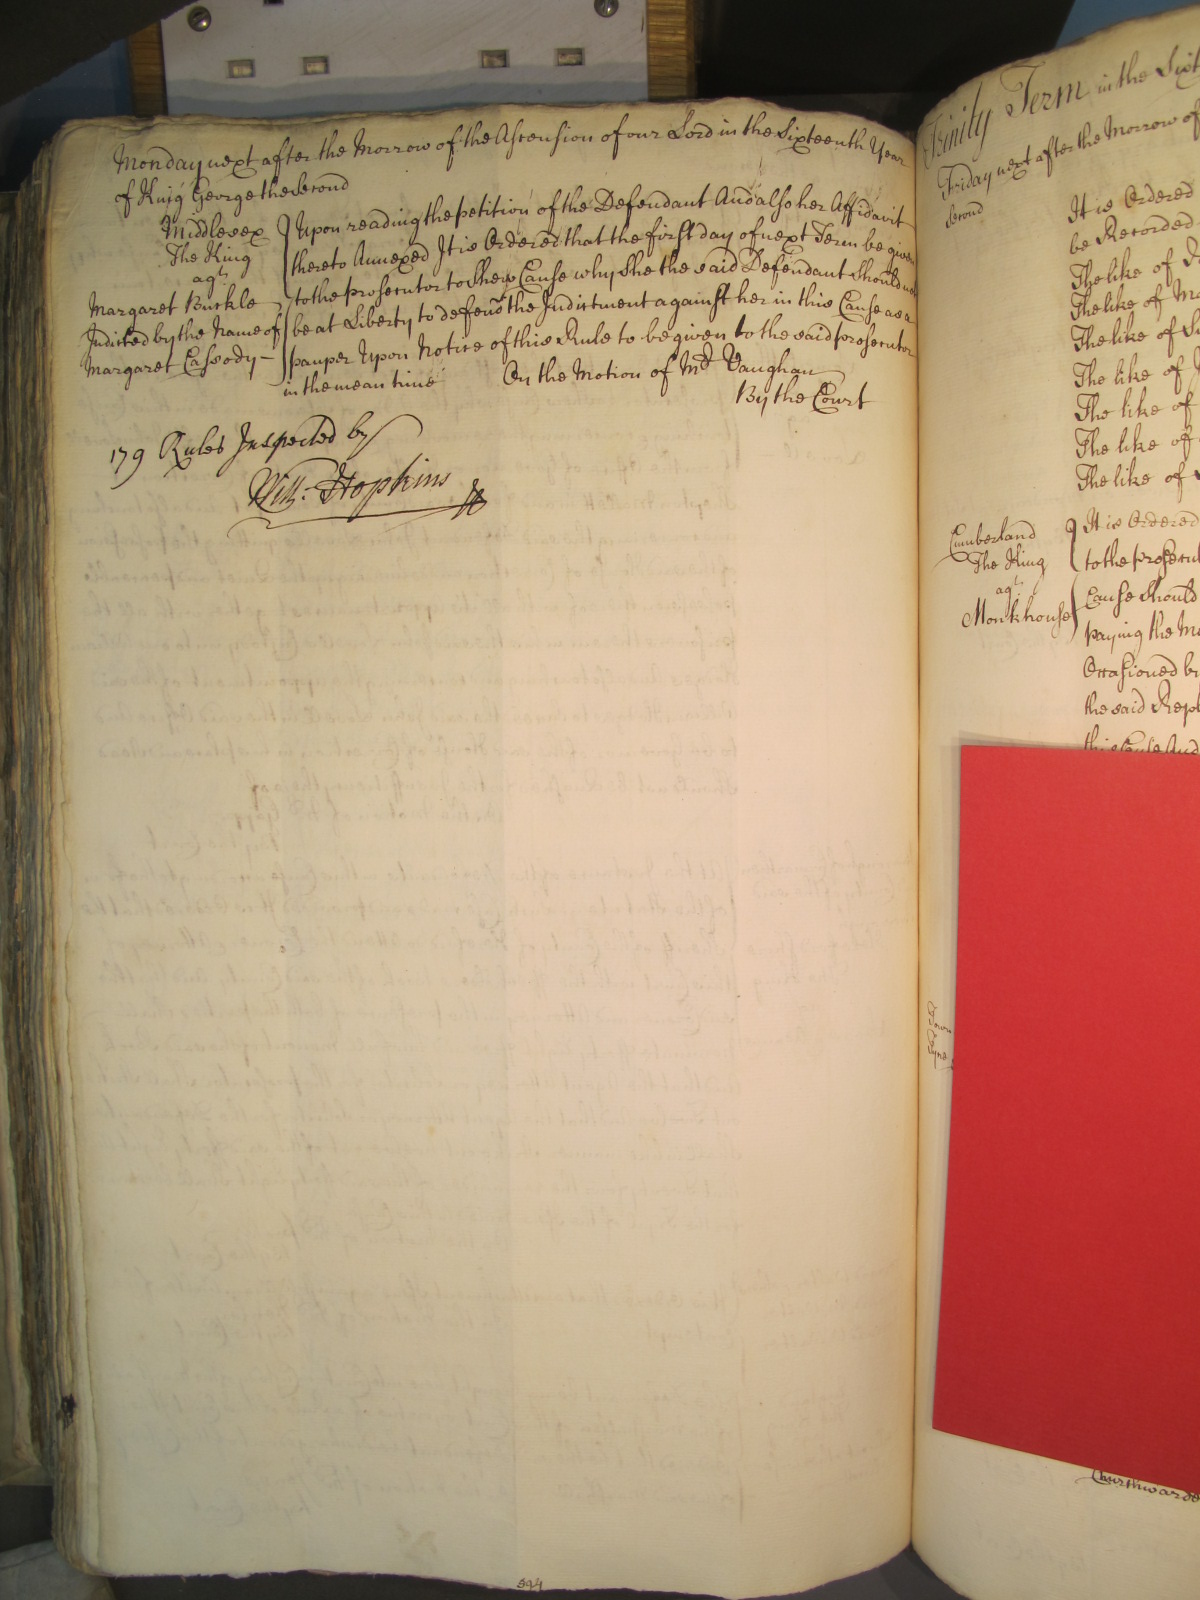 Monday next after the Morrow of the Ascension of our Lord in the Sixteenth Year
of King George the Second
Middlesex
The King
agt
Margaret Buckle
Indicted by the Name of
Margaret Cassody —
Upon reading the petition of the Defendant And also her Affidavit
thereto Annexed It is Ordered that the first day of next Term be given
to the prosecutor to Shew Cause why She the said Defendant Should not
be at Liberty to defend the Indictment against her in this Cause as a
pauper Upon Notice of this Rule to be given to the said prosecutor
in the mean time On the Motion of Mr Vaughan
By the Court
179 Rules Inspected by
Will: Hopkins
594
Trinity Term in the Sixt
Friday next after the Morrow of
Second
It is Ordered
be Recorded
The like of
The like of Mo
The like of
The like of
The like of
The like of
The like of
Cumberland
The King
agt
Monkhouse
It is Ordered
to the prosecut
Cause Should
paying the Mo
Occasioned by
the said Repl
this Cause And
Town
Tyne
Churchwarde